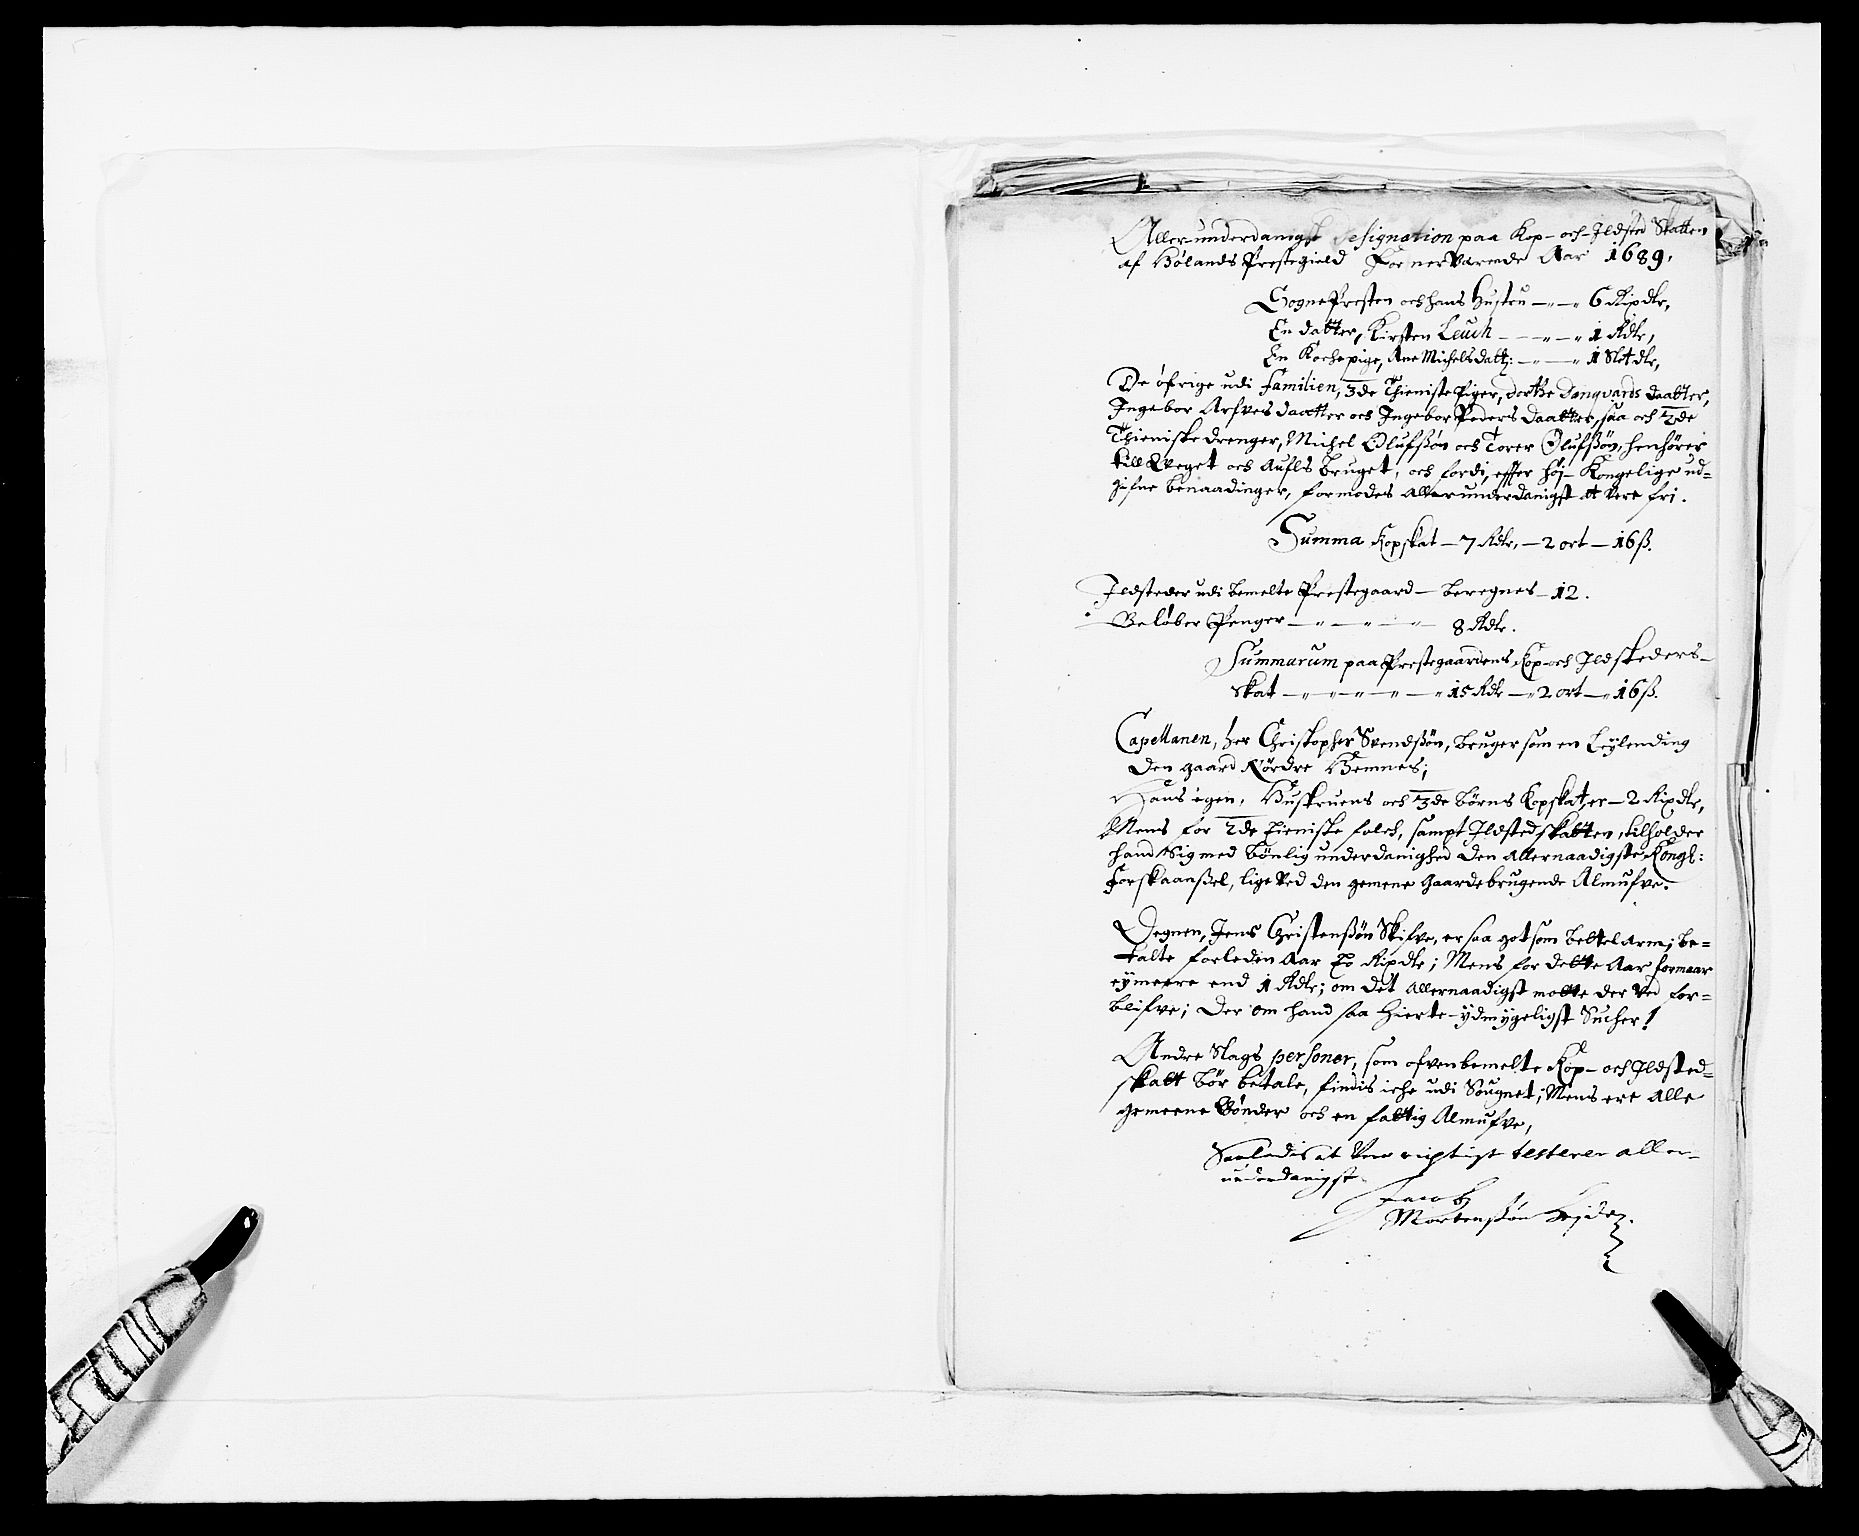 Aller-underdanigst designation paa Kop- och Ildsted Skatten
af Hølands Prestegield For nerVærende Aar 1689,
SognePresten och hans Hustru — 〃 — 〃 6 Rixdlr,
En datter, Kirsten Leuch — — 〃 — 〃 1 Rdlr,
En Kochepige, Ane Michelsdatt: — 〃 — 〃 1 Slet dlr,
De öfrige udi familien, 3de ThienistePiger, dorthe Danqvards daatter,
Ingebor Arfves daatter och Ingebor Peders daatter, saa och 2de
Thieniste drenger, Michel Olufßøn och Torer Olufßøn, henhører
till Eget och Aufls bruget, och fordi, effter höj-Kongelige ud=
gifne benaadinger, formodes allerunderdanigst at vere fri.
Summa Kopskat — 7 Rdlr, — 2 ort — 16 ß.
Ildsteder udi bemelte Prestegaard — beregnes — 12.
Beløber Penger — 〃 — 〃 — 〃 8 Rdlr.
Summarum paa Prestegaardens Kop- och Ildsteders-
Skat — 〃 — 〃 — 〃 — 〃 15 Rdlr — 〃 2 ort — 〃 16 ß.
Capellanen, her Christopher Svendßøn, bruger som en Leylending
den gaard Nördre Hemnes;
Hans egen, Hustruens och 3de börns Kopskat, er — 2 Rixdlr,
Mens for 2de tieniste folch, sampt Ildstedskatten, tilholder
hand Sig med bönlig underdanighed den allernaadigste Kongl:
Forskaanßel, lige ved den gemene gaardebrugende Almufve.
Degnen, Jens Christenßøn Skifve, er saa got som bettel arm; be=
talte forleden Aar to Rixdlr; Mens for dette Aar formaar
ey meere end 1 Rdlr; om det allernaadigst motte der ved for=
blifve; Der om hand saa hierte-ydmygeligst Sucher!
Andre Slags personer, som ofvenbemelte Kop- och Ildsted=
skatt bör betale, findis iche udi Sougnet; Mens ere alle
gemeene Bönder och en fattig Almufve,
Saaledis at Vere rigtigt testerer aller-
underdanigst.
Jacob
Mortenßøn